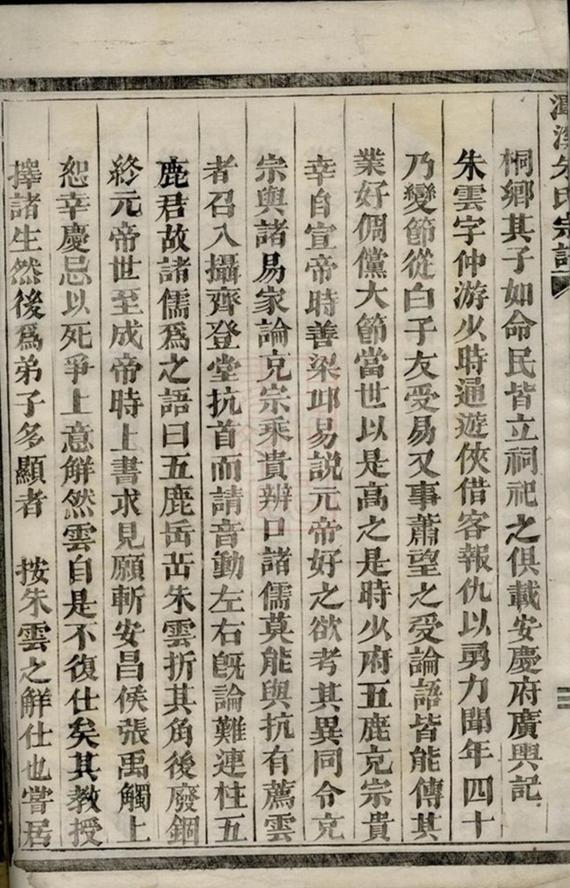 朱氏宗譜
桐鄉其子如命民皆立祠祀之俱載安慶府廣輿記
朱雲字仲游少時通遊俠借客報仇以勇力聞年四十
乃變節從白子友受易又事蕭望之受論語皆能傳其
業好倜儻大節當世以是高之是時少府五鹿充宗貴
幸自宣帝時善梁邱易說元帝好之欲考其異同令充
宗與諸易家論充宗乘貴辨口諸儒莫能與抗有薦雲
者召入攝齊登堂抗首而請音動左右旣論難連柱五
鹿君故諸儒爲之語曰五鹿岳岳朱雲折其角後廢錮
終元帝世至成帝時上書求見願斬安昌侯張禹觸上
恕幸慶忌以死爭上意觧然雲自是不復仕矣其教授
擇諸生然後爲弟子多顯者 按朱雲之觧仕也嘗居
三